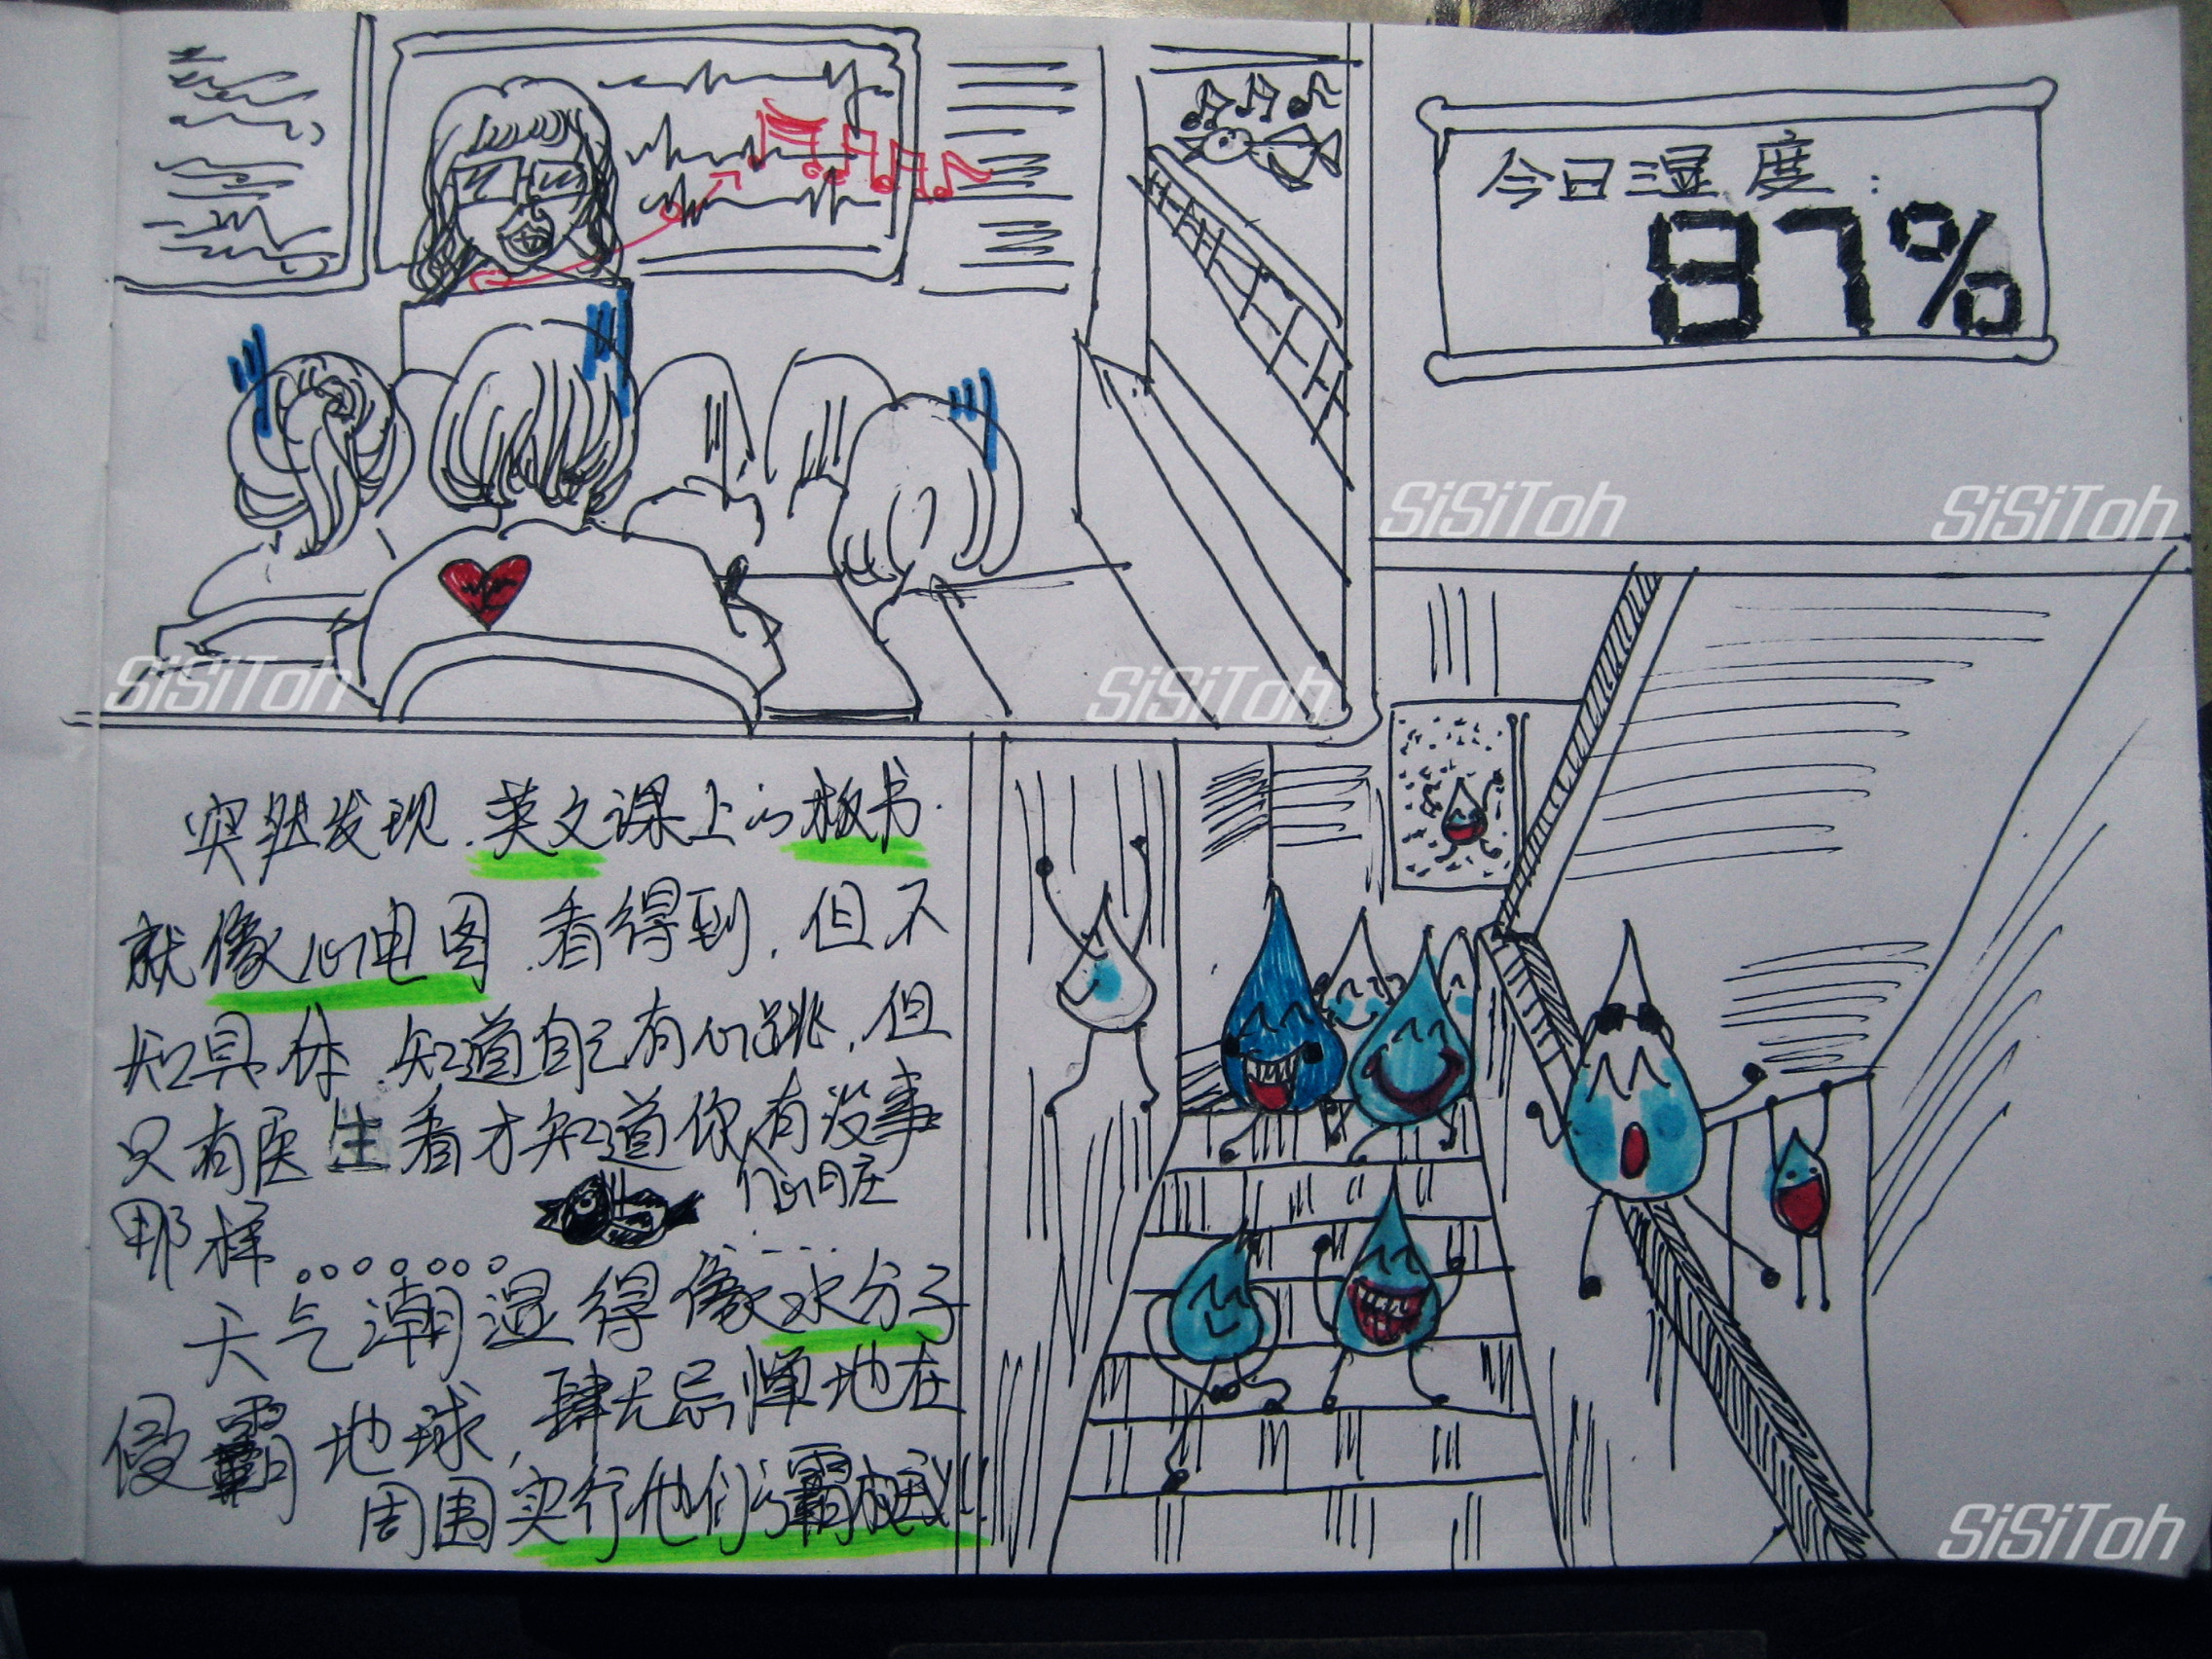 今日湿度：
87%
SiSiToh
SiSiToh
SiSiToh
SiSiToh
突然发现.英文课上的板书.
就像心电图.看得到.但不
知具体.知道自己有心跳.但
只有医生看才知道你有没事
那样.......
天气潮湿得像水分子
侵霸地球,肆无忌惮地在
周围实行他们的霸权!!
SiSiToh